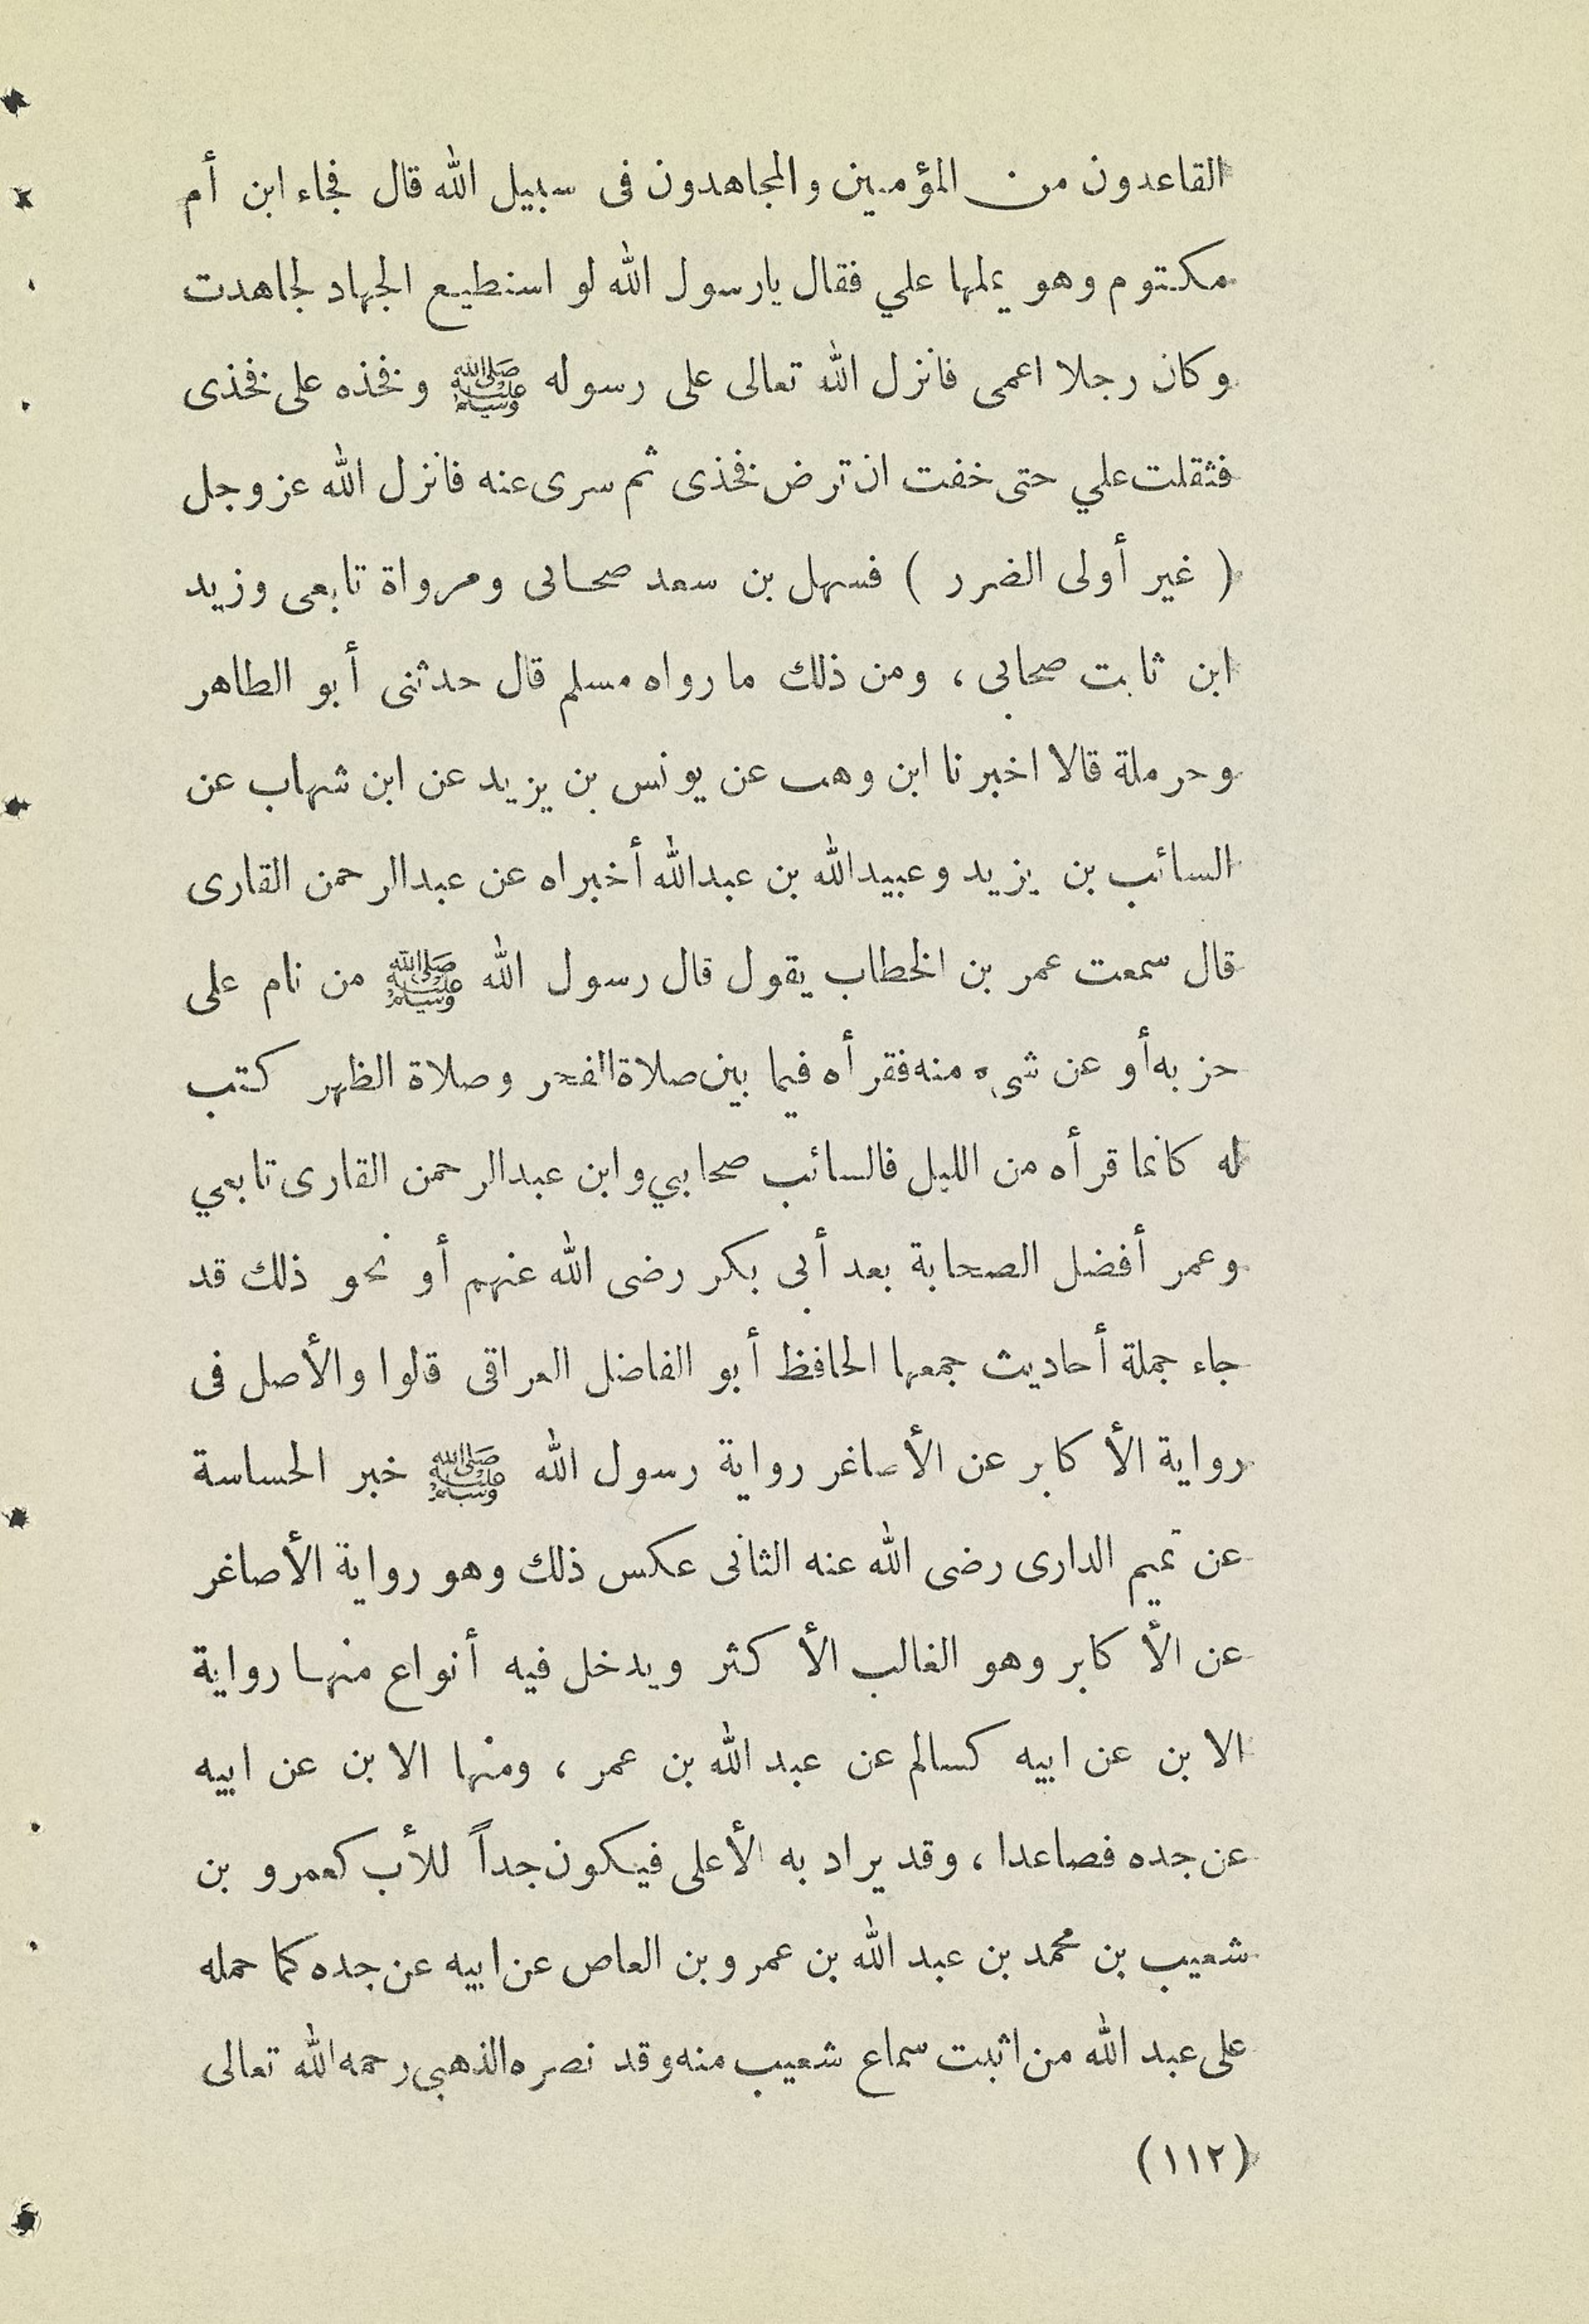 القاعدون من المؤمنين والمجاهدون فى سبيل الله قال فجاء ابن أم
مكتوم وهو يملها علي فقال يارسول الله لو استطيع الجهاد لجاهدت
وكان رجلا اعمى فانزل الله تعالى على رسوله ﷺ وفخذه على فخذى
فثقلت علي حتى خفت ان ترض فخذى ثم سرى عنه فانزل الله عز وجل
( غير أولى الضرر ) فسهل بن سعد صحابى ومرواة تابعى وزيد
ابن ثابت صحابى ، ومن ذلك ما رواه مسلم قال حدثنى أبو الطاهر
وحرملة قالا اخبرنا ابن وهب عن يونس بن يزيد عن ابن شهاب عن
السائب بن يزيد وعبيدالله بن عبدالله أخبراه عن عبدالرحمن القارى
قال سمعت عمر بن الخطاب يقول قال رسول الله ﷺ من نام على
حزبه أو عن شىء منه فقرأه فيما بين صلاة الفجر وصلاة الظهر كتب
له كانما قرأه من الليل فالسائب صحابي وابن عبدالرحمن القارى تابعي
وعمر أفضل الصحابة بعد أبى بكر رضى الله عنهم أو نحو ذلك قد
جاء جملة أحاديث جمعها الحافظ أبو الفاضل العراقى قالوا والأصل فى
رواية الأكابر عن الأصاغر رواية رسول الله ﷺ خبر الحساسة
عن تميم الدارى رضى الله عنه الثانى عكس ذلك وهو رواية الأصاغر
عن الأكابر وهو الغالب الأكثر ويدخل فيه أنواع منها رواية
الابن عن ابيه كسالم عن عبد الله بن عمر ، ومنها الابن عن ابيه
عن جده فصاعدا ، وقد يراد به الأعلى فيكون جداً للأب كعمرو بن
شعيب بن محمد بن عبد الله بن عمرو بن العاص عن ابيه عن جده كما حمله
على عبد الله من اثبت سماع شعيب منه وقد نصره الذهبى رحمه الله تعالى
(١١٢)